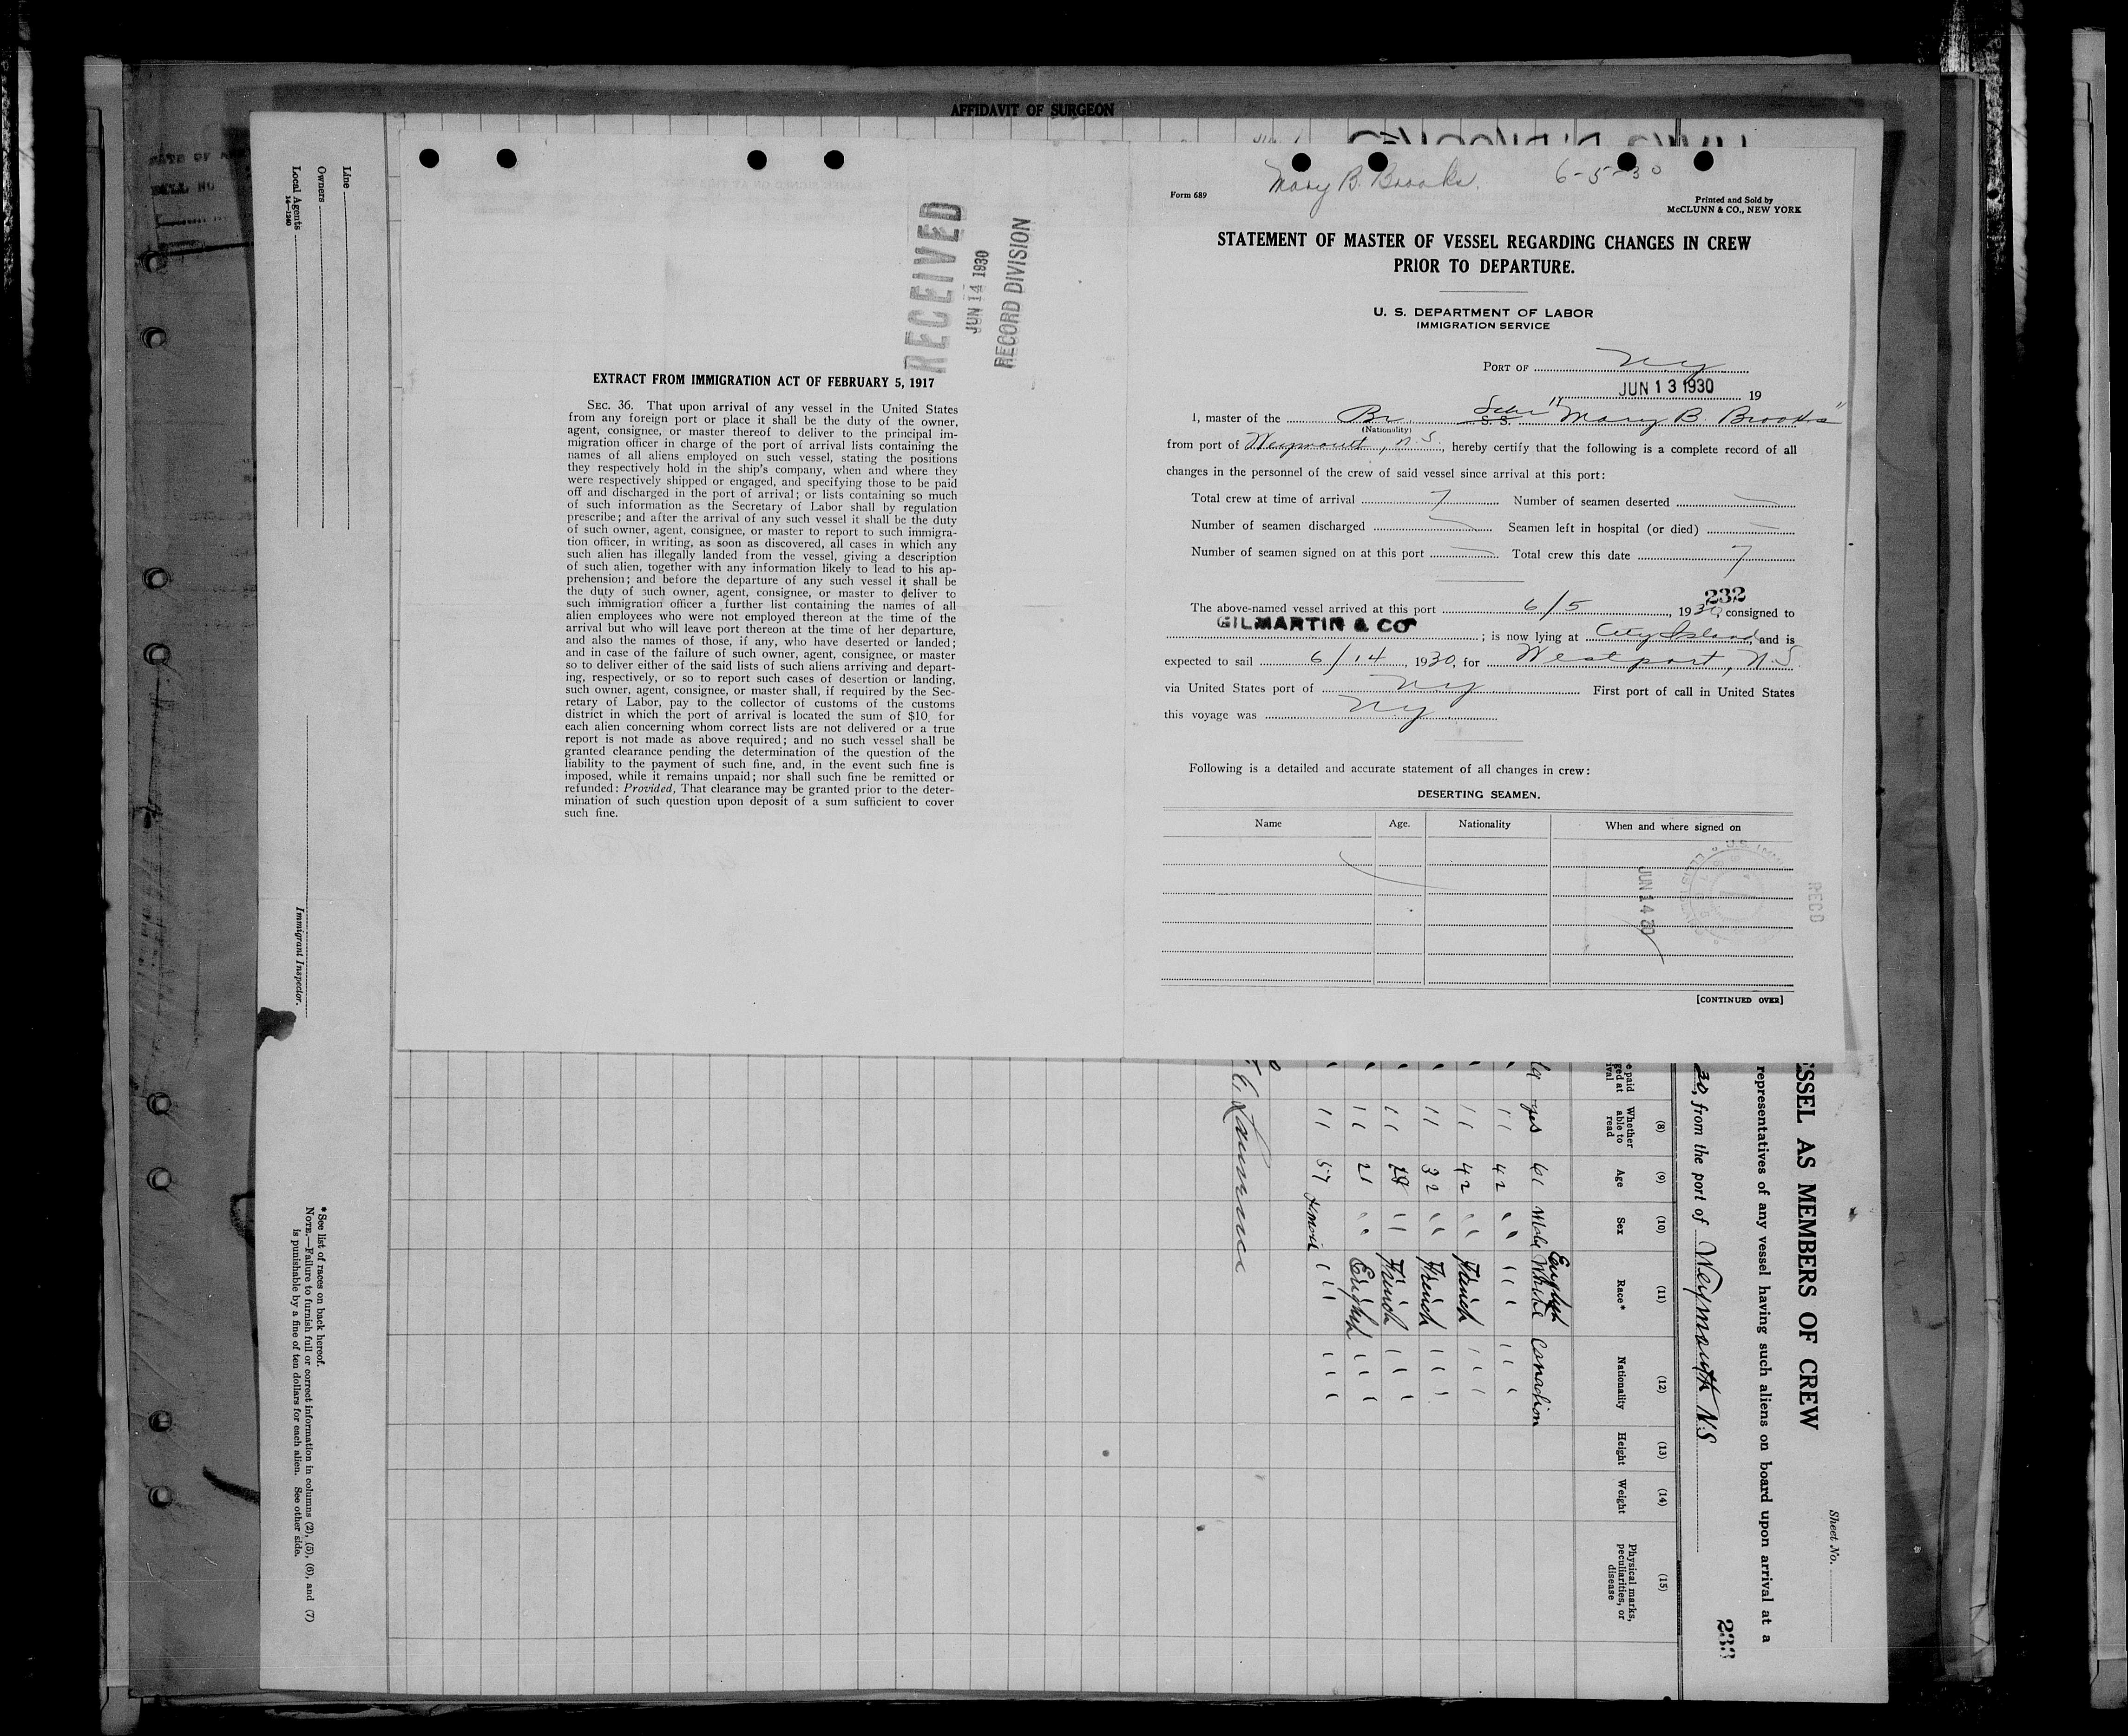 AFFIDAVIT OF SURGEON
Line
Owners
Local Agents
14—1240
Immigrant Inspector.
* See list of races on back hereof.
NOTE.—Failure to furnish full or correct information in columns (2), (5), (6), and (7)
is punishable by a fine of ten dollars for each alien. See other side.
RECEIVED
JUN 14 1930
RECORD DIVISION
EXTRACT FROM IMMIGRATION ACT OF FEBRUARY 5, 1917
SEC. 36. That upon arrival of any vessel in the United States
from any foreign port or place it shall be the duty of the owner,
agent, consignee, or master thereof to deliver to the principal im-
migration officer in charge of the port of arrival lists containing the
names of all aliens employed on such vessel, stating the positions
they respectively hold in the ship's company, when and where they
were respectively shipped or engaged, and specifying those to be paid
off and discharged in the port of arrival; or lists containing so much
of such information as the Secretary of Labor shall by regulation
prescribe; and after the arrival of any such vessel it shall be the duty
of such owner, agent, consignee, or master to report to such immigra-
tion officer, in writing, as soon as discovered, all cases in which any
such alien has illegally landed from the vessel, giving a description
of such alien, together with any information likely to lead to his ap-
prehension; and before the departure of any such vessel it shall be
the duty of such owner, agent, consignee, or master to deliver to
such immigration officer a further list containing the names of all
alien employees who were not employed thereon at the time of the
arrival but who will leave port thereon at the time of her departure,
and also the names of those, if any, who have deserted or landed;
and in case of the failure of such owner, agent, consignee, or master
so to deliver either of the said lists of such aliens arriving and depart-
ing, respectively, or so to report such cases of desertion or landing,
such owner, agent, consignee, or master shall, if required by the Sec-
retary of Labor, pay to the collector of customs of the customs
district in which the port of arrival is located the sum of $10 for
each alien concerning whom correct lists are not delivered or a true
report is not made as above required; and no such vessel shall be
granted clearance pending the determination of the question of the
liability to the payment of such fine, and, in the event such fine is
imposed, while it remains unpaid; nor shall such fine be remitted or
refunded: Provided, That clearance may be granted prior to the deter-
mination of such question upon deposit of a sum sufficient to cover
such fine.
Mary B. Brooks. 6-5-30
Form 689
Printed and Sold by
McCLUNN & CO., NEW YORK
STATEMENT OF MASTER OF VESSEL REGARDING CHANGES IN CREW
PRIOR TO DEPARTURE.
U. S. DEPARTMENT OF LABOR
IMMIGRATION SERVICE
PORT OF NY
JUN 13 1930 19
I, master of the Br. S. S. Schr "Mary B. Brooks"
(Nationality)
from port of Weymouth, N.S., hereby certify that the following is a complete record of all
changes in the personnel of the crew of said vessel since arrival at this port:
Total crew at time of arrival 7 Number of seamen deserted —
Number of seamen discharged — Seamen left in hospital (or died) —
Number of seamen signed on at this port — Total crew this date 7
232
The above-named vessel arrived at this port 6/5, 1930, consigned to
GILMARTIN & CO; is now lying at City Island, and is
expected to sail 6/14, 1930, for Westport, N.S
via United States port of NY First port of call in United States
this voyage was NY
Following is a detailed and accurate statement of all changes in crew:
DESERTING SEAMEN.
Name Age. Nationality When and where signed on
JUN 14 30
REC'D
[CONTINUED OVER]
SSEL AS MEMBERS OF CREW
Sheet No.
representatives of any vessel having such aliens on board upon arrival at a
30, from the port of Weymouth N.S
233
(8) (9) (10) (11) (12) (13) (14) (15)
Whether able to read Age Sex Race* Nationality Height Weight Physical marks, peculiarities, or disease
English
yes 61 Male White Canadian
" 42 " " "
" 42 " French "
" 32 " French "
" 28 " French "
" 21 " English "
" 57 " "